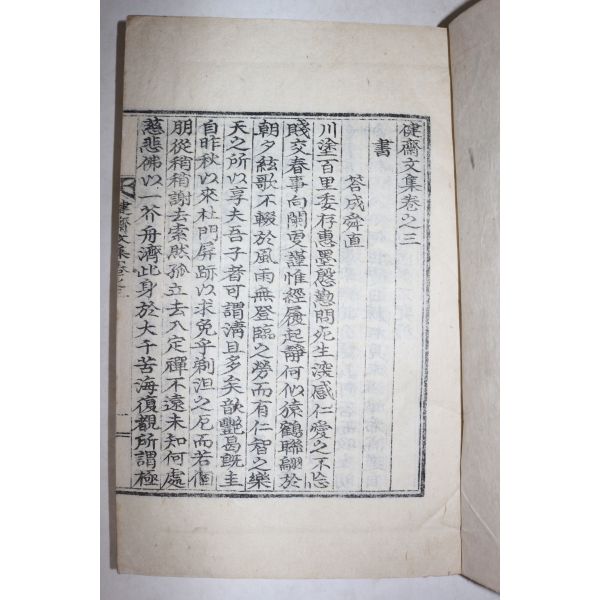 健齋文集卷之三
書
答成舜直
川塗百里委存惠墨慇懃問死生深感仁愛之不忘
賤交春事向闌更謹惟經履起靜何似猿鶴聯翩於
朝夕絃歌不輟於風雨無登臨之勞而有仁智之樂
天之所以享夫吾子者可謂淸且多矣歆艶曷旣圭
自昨秋以來杜門屏跡以求免乎剃沮之厄而若個
朋從稍稍謝去索然孤立去入定禪不遠未知何處
慈悲佛以一芥舟濟此身於大千苦海復覩所謂極
健齋文集卷之三